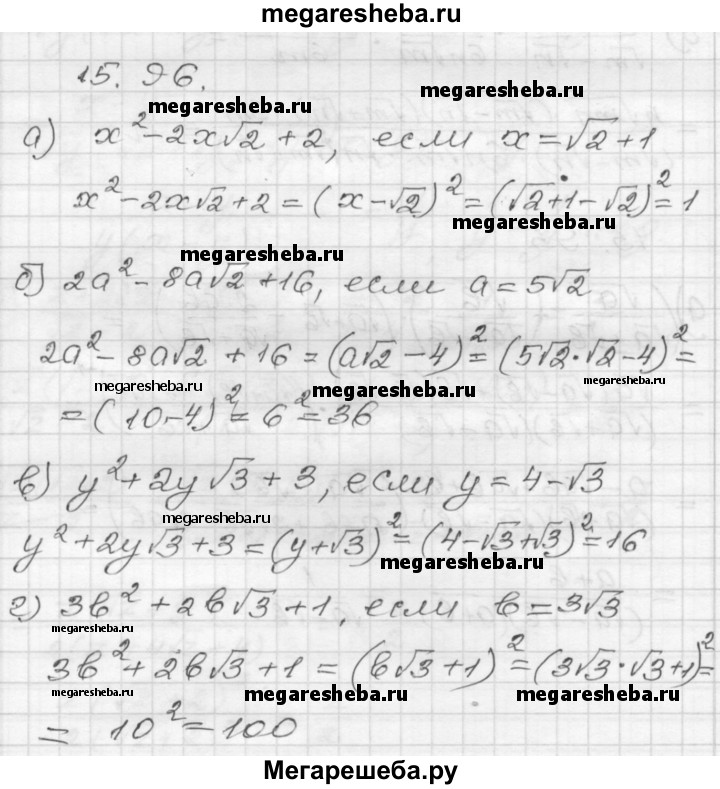 megaresheba.ru
15. 96.
megaresheba.ru
а) x² - 2x√2 + 2, если x = √2 + 1
x² - 2x√2 + 2 = (x - √2)² = (√2 + 1 - √2)² = 1
megaresheba.ru
megaresheba.ru
б) 2a² - 8a√2 + 16, если a = 5√2
2a² - 8a√2 + 16 = (a√2 - 4)² = (5√2·√2 - 4)² =
megaresheba.ru megaresheba.ru megaresheba.ru
= (10 - 4)² = 6² = 36
в) y² + 2y√3 + 3, если y = 4 - √3
megaresheba.ru
y² + 2y√3 + 3 = (y + √3)² = (4 - √3 + √3)² = 16
megaresheba.ru
г) 3b² + 2b√3 + 1, если b = 3√3
megaresheba.ru
3b² + 2b√3 + 1 = (b√3 + 1)² = (3√3·√3 + 1)² =
megaresheba.ru megaresheba.ru megaresheba.ru
= 10² = 100
Мегарешеба.ру